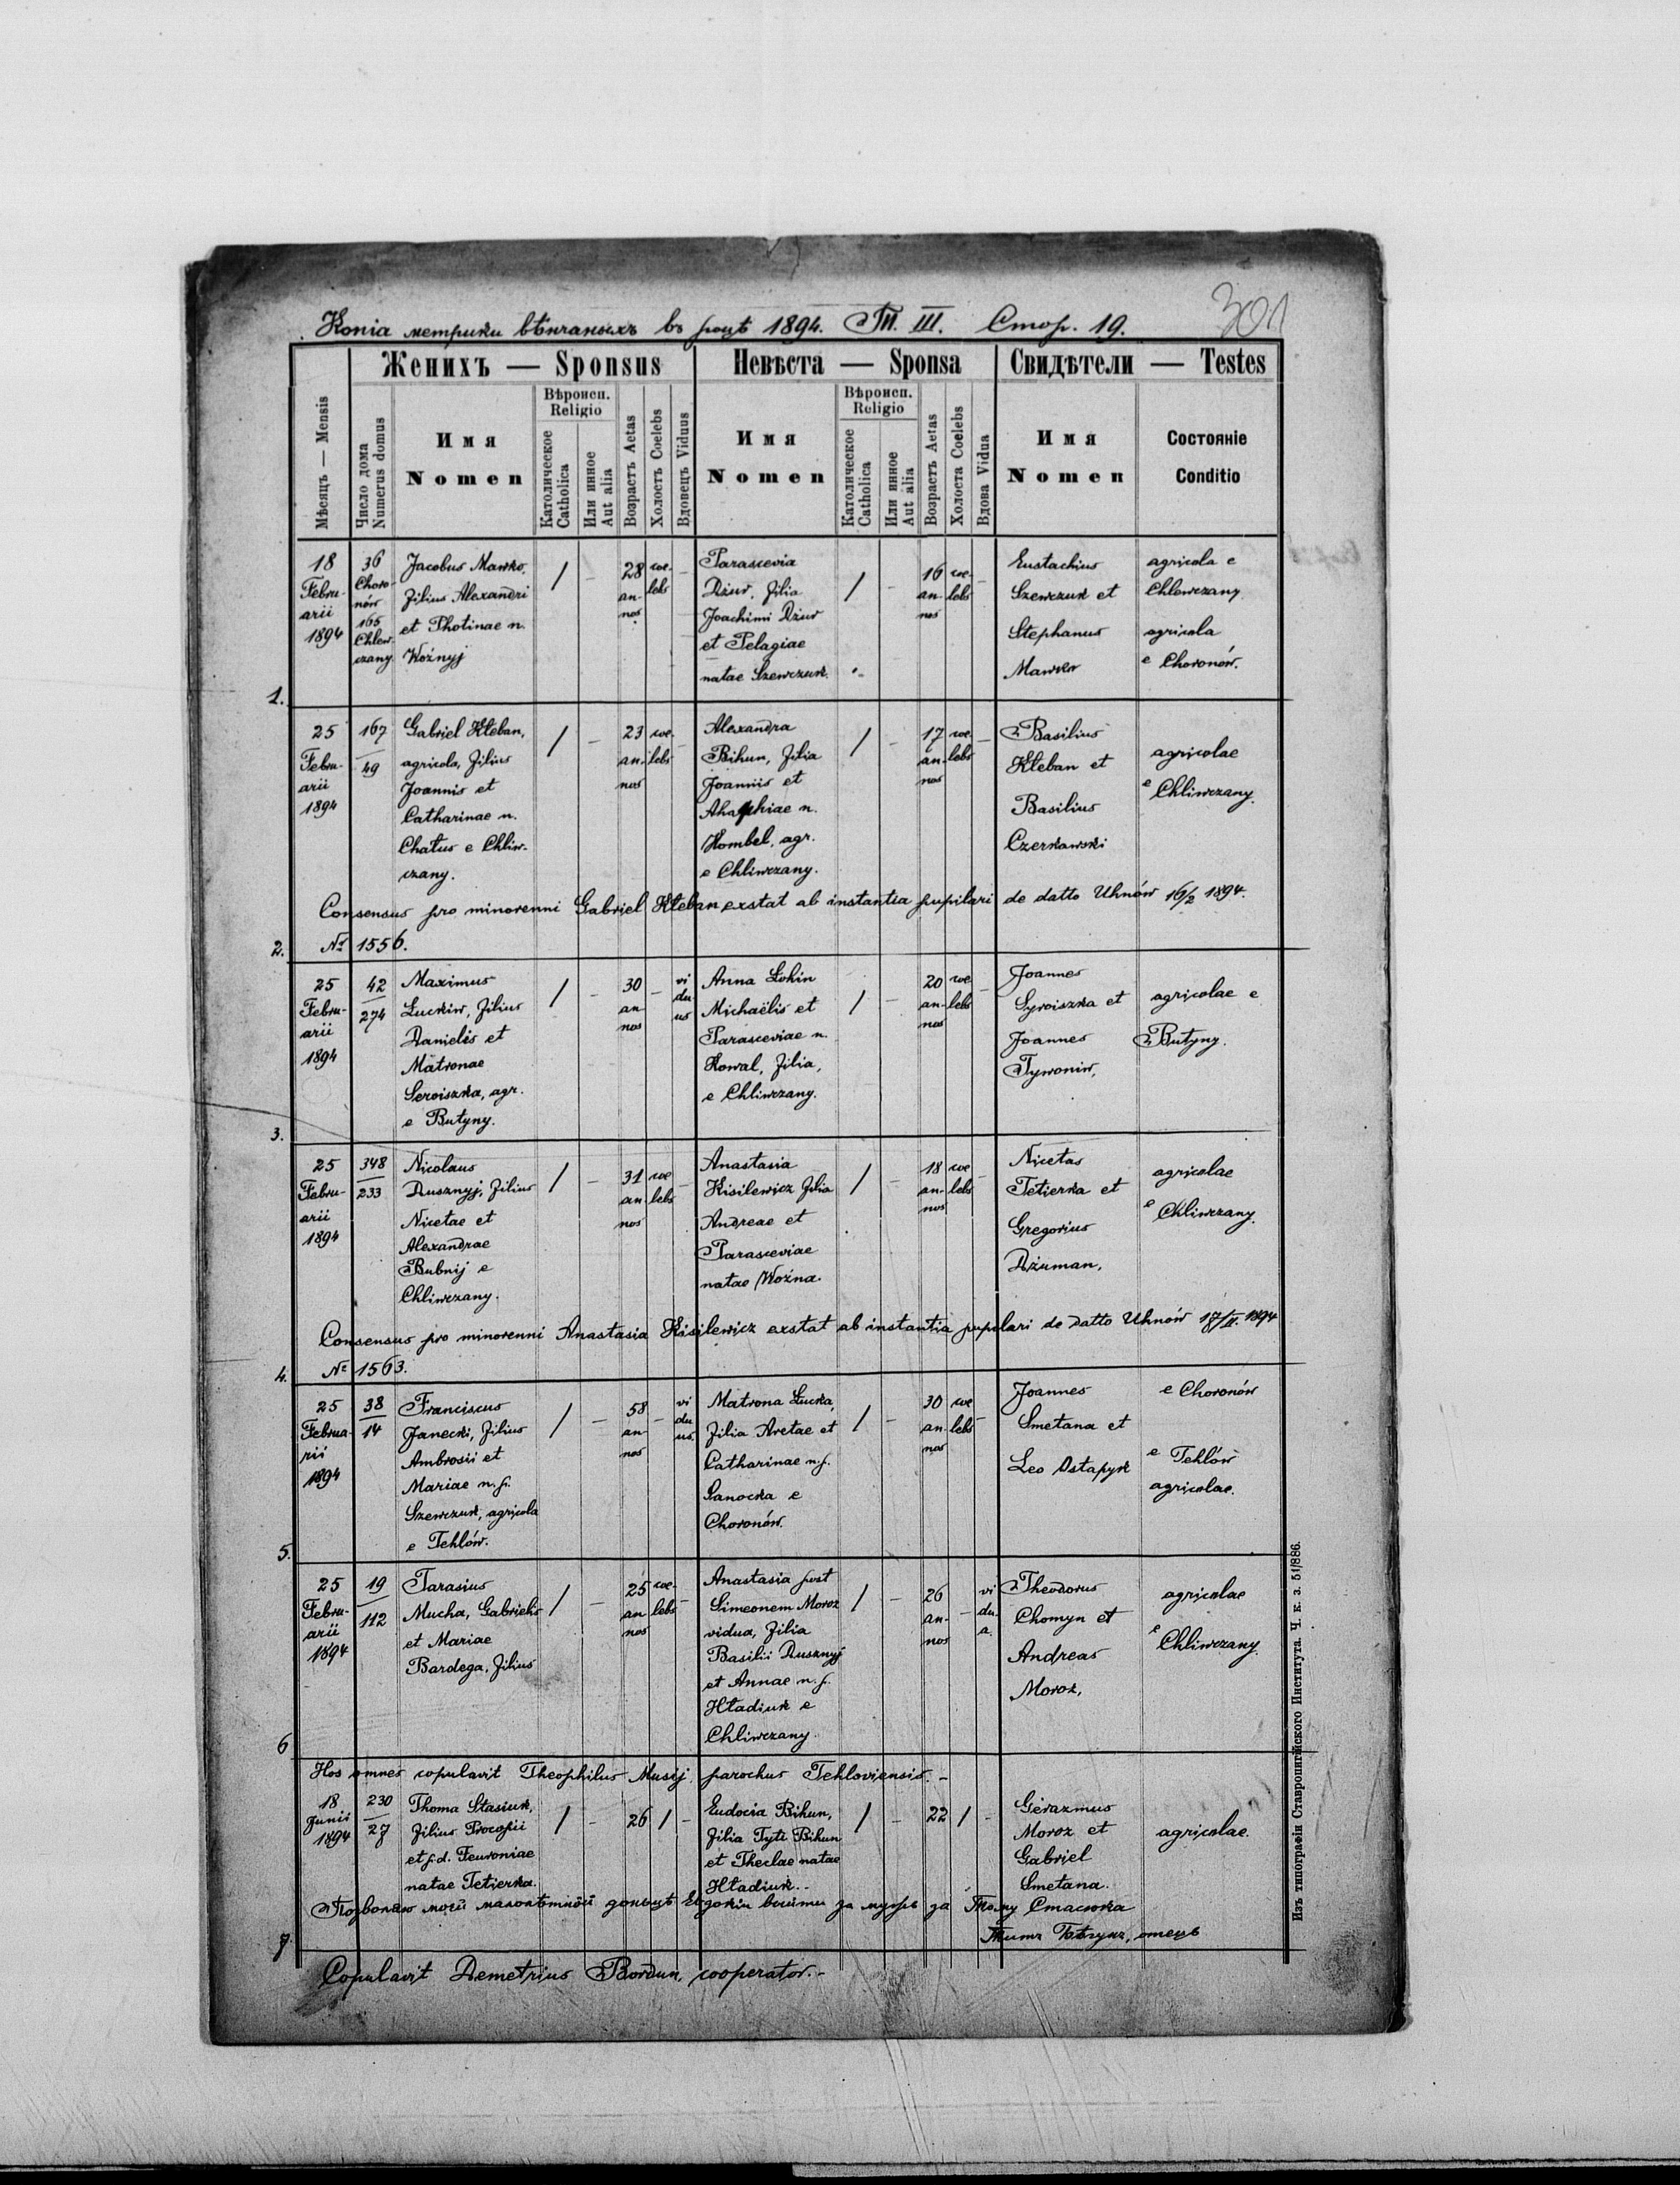 Копіа метрики вѣнчаныхъ въ роцѣ 1894. Т. III. Стор. 19.
301
Женихъ — Sponsus
Невѣста — Sponsa
Свидѣтели — Testes
Мѣсяцъ — Mensis
Число дома
Numerus domus
Имя
Nomen
Вѣроисп.
Religio
Католическое
Catholica
Или инное
Aut alia
Возрастъ Aetas
Холостъ Coelebs
Вдовецъ Viduus
Имя
Nomen
Вѣроисп.
Religio
Католическое
Catholica
Или инное
Aut alia
Возрастъ Aetas
Холоста Coelebs
Вдова Vidua
Имя
Nomen
Состояніе
Conditio
1.
18
Febru-
arii
1894
36
Choro-
nów
165
Chlew-
czany
Jacobus Mawko,
filius Alexandri
et Photinae n.
Woźnyj
/
-
28
an-
nos
coe-
lebs
-
Parascevia
Dżus, filia
Joachimi Dżus
et Pelagiae
natae Szewczuk.
/
-
16
an-
nos
coe-
lebs
-
Eustachius
Szewczuk et
Stephanus
Mawko
agricola e
Chlewczany
agricola
e Choronów.
2.
25
Febru-
arii
1894
167
49
Gabriel Kłeban,
agricola, filius
Joannis et
Catharinae n.
Chatus e Chliw-
czany.
/
-
23
an-
nos
coe-
lebs
-
Alexandra
Bihun, filia
Joannis et
Ahaphiae n.
Kombel, agr.
e Chliwczany.
/
-
17
an-
nos
coe-
lebs
-
Basilius
Kłeban et
Basilius
Czerkawski
agricolae
e Chliwczany.
Consensus pro minorenni Gabriel Kłeban exstat ab instantia pupilari de datto Uhnów 16/2 1894.
№ 1556.
3.
25
Febru-
arii
1894
42
274
Maximus
Łuckiw, filius
Danielis et
Matronae
Seroiszka, agr.
e Butyny.
/
-
30
an-
nos
-
vi
du
us
Anna Łohin
Michaëlis et
Parasceviae n.
Kowal, filia,
e Chliwczany.
/
-
20
an-
nos
coe-
lebs
-
Joannes
Syroiszka et
Joannes
Tywoniw,
agricolae e
Butyny.
4.
25
Febru-
arii
1894
348
233
Nicolaus
Dusznyj, filius
Nicetae et
Alexandrae
Bubnij e
Chliwczany.
/
-
31
an-
nos
coe
lebs
-
Anastasia
Kisilewicz filia
Andreae et
Parasceviae
natae Woźna.
/
-
18
an-
nos
coe
lebs
-
Nicetas
Tetierka et
Gregorius
Dżuman,
agricolae
e Chliwczany.
Consensus pro minorenni Anastasia Kisilewicz exstat ab instantia pupilari de datto Uhnów 17/II. 1894
№ 1563.
5.
25
Februa-
rii
1894
38
14
Franciscus
Janecki, filius
Ambrosii et
Mariae n. f.
Szewczuk, agricola
e Tehlów.
/
-
58
an-
nos
-
vi
du
us.
Matrona Łucka,
filia Aretae et
Catharinae n. f.
Sanocka e
Choronów.
/
-
30
an-
nos
coe
lebs
-
Joannes
Smetana et
Leo Ostapyk
e Choronów
e Tehlów
agricolae.
6
25
Febru-
arii
1894
19
112
Tarasius
Mucha, Gabrielis
et Mariae
Bardega, filius
/
-
25
an
nos
coe-
lebs
-
Anastasia post
Simeonem Moroz
vidua, filia
Basilii Dusznyj
et Annae n. f.
Hładiuk e
Chliwczany.
/
-
26
an-
nos
-
vi
du-
a.
Theodorus
Chomyn et
Andreas
Moroz,
agricolae
e Chliwczany
Hos omnes copulavit Theophilus Musij, parochus Tehloviensis. -
7.
18
Junii
1894
230
27
Thoma Stasiuk,
filius Procopii
et p.d. Feuroniae
natae Tetierka.
/
-
26
/
-
Eudocia Bihun,
filia Tyti Bihun
et Theclae natae
Hładiuk. -
/
-
22
/
-
Gerazmus
Moroz et
Gabriel
Smetana.
agricolae.
Позволяю моей малолѣтной доньцѣ Евдокіи выйти за мужъ за Тому Стасюка
Титъ Бѣгунъ, отецъ
Copulavit Demetrius Bordun, cooperator. -
Изъ типографіи Ставропигійского Института. Ч. к. з. 51/886.